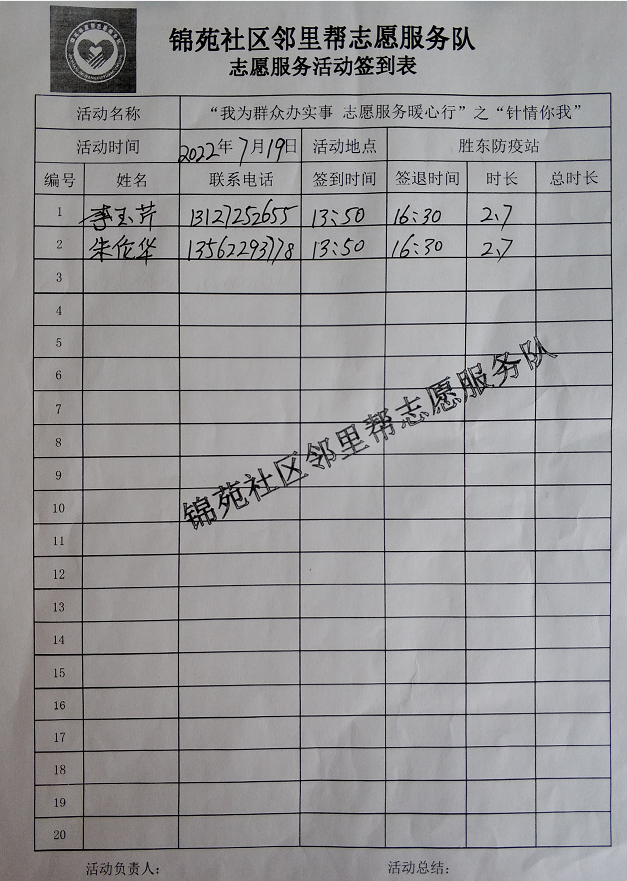 锦苑社区邻里帮志愿服务队
志愿服务活动签到表
活动名称 “我为群众办实事 志愿服务暖心行”之“针情你我”
活动时间 2022年7月19日 活动地点 胜东防疫站
编号 姓名 联系电话 签到时间 签退时间 时长 总时长
1 李玉芹 13127252655 13:50 16:30 2.7
2 朱伦华 13562293778 13:50 16:30 2.7
3
4
5
6
7
8
9
10
11
12
13
14
15
16
17
18
19
20
锦苑社区邻里帮志愿服务队
活动负责人： 活动总结：